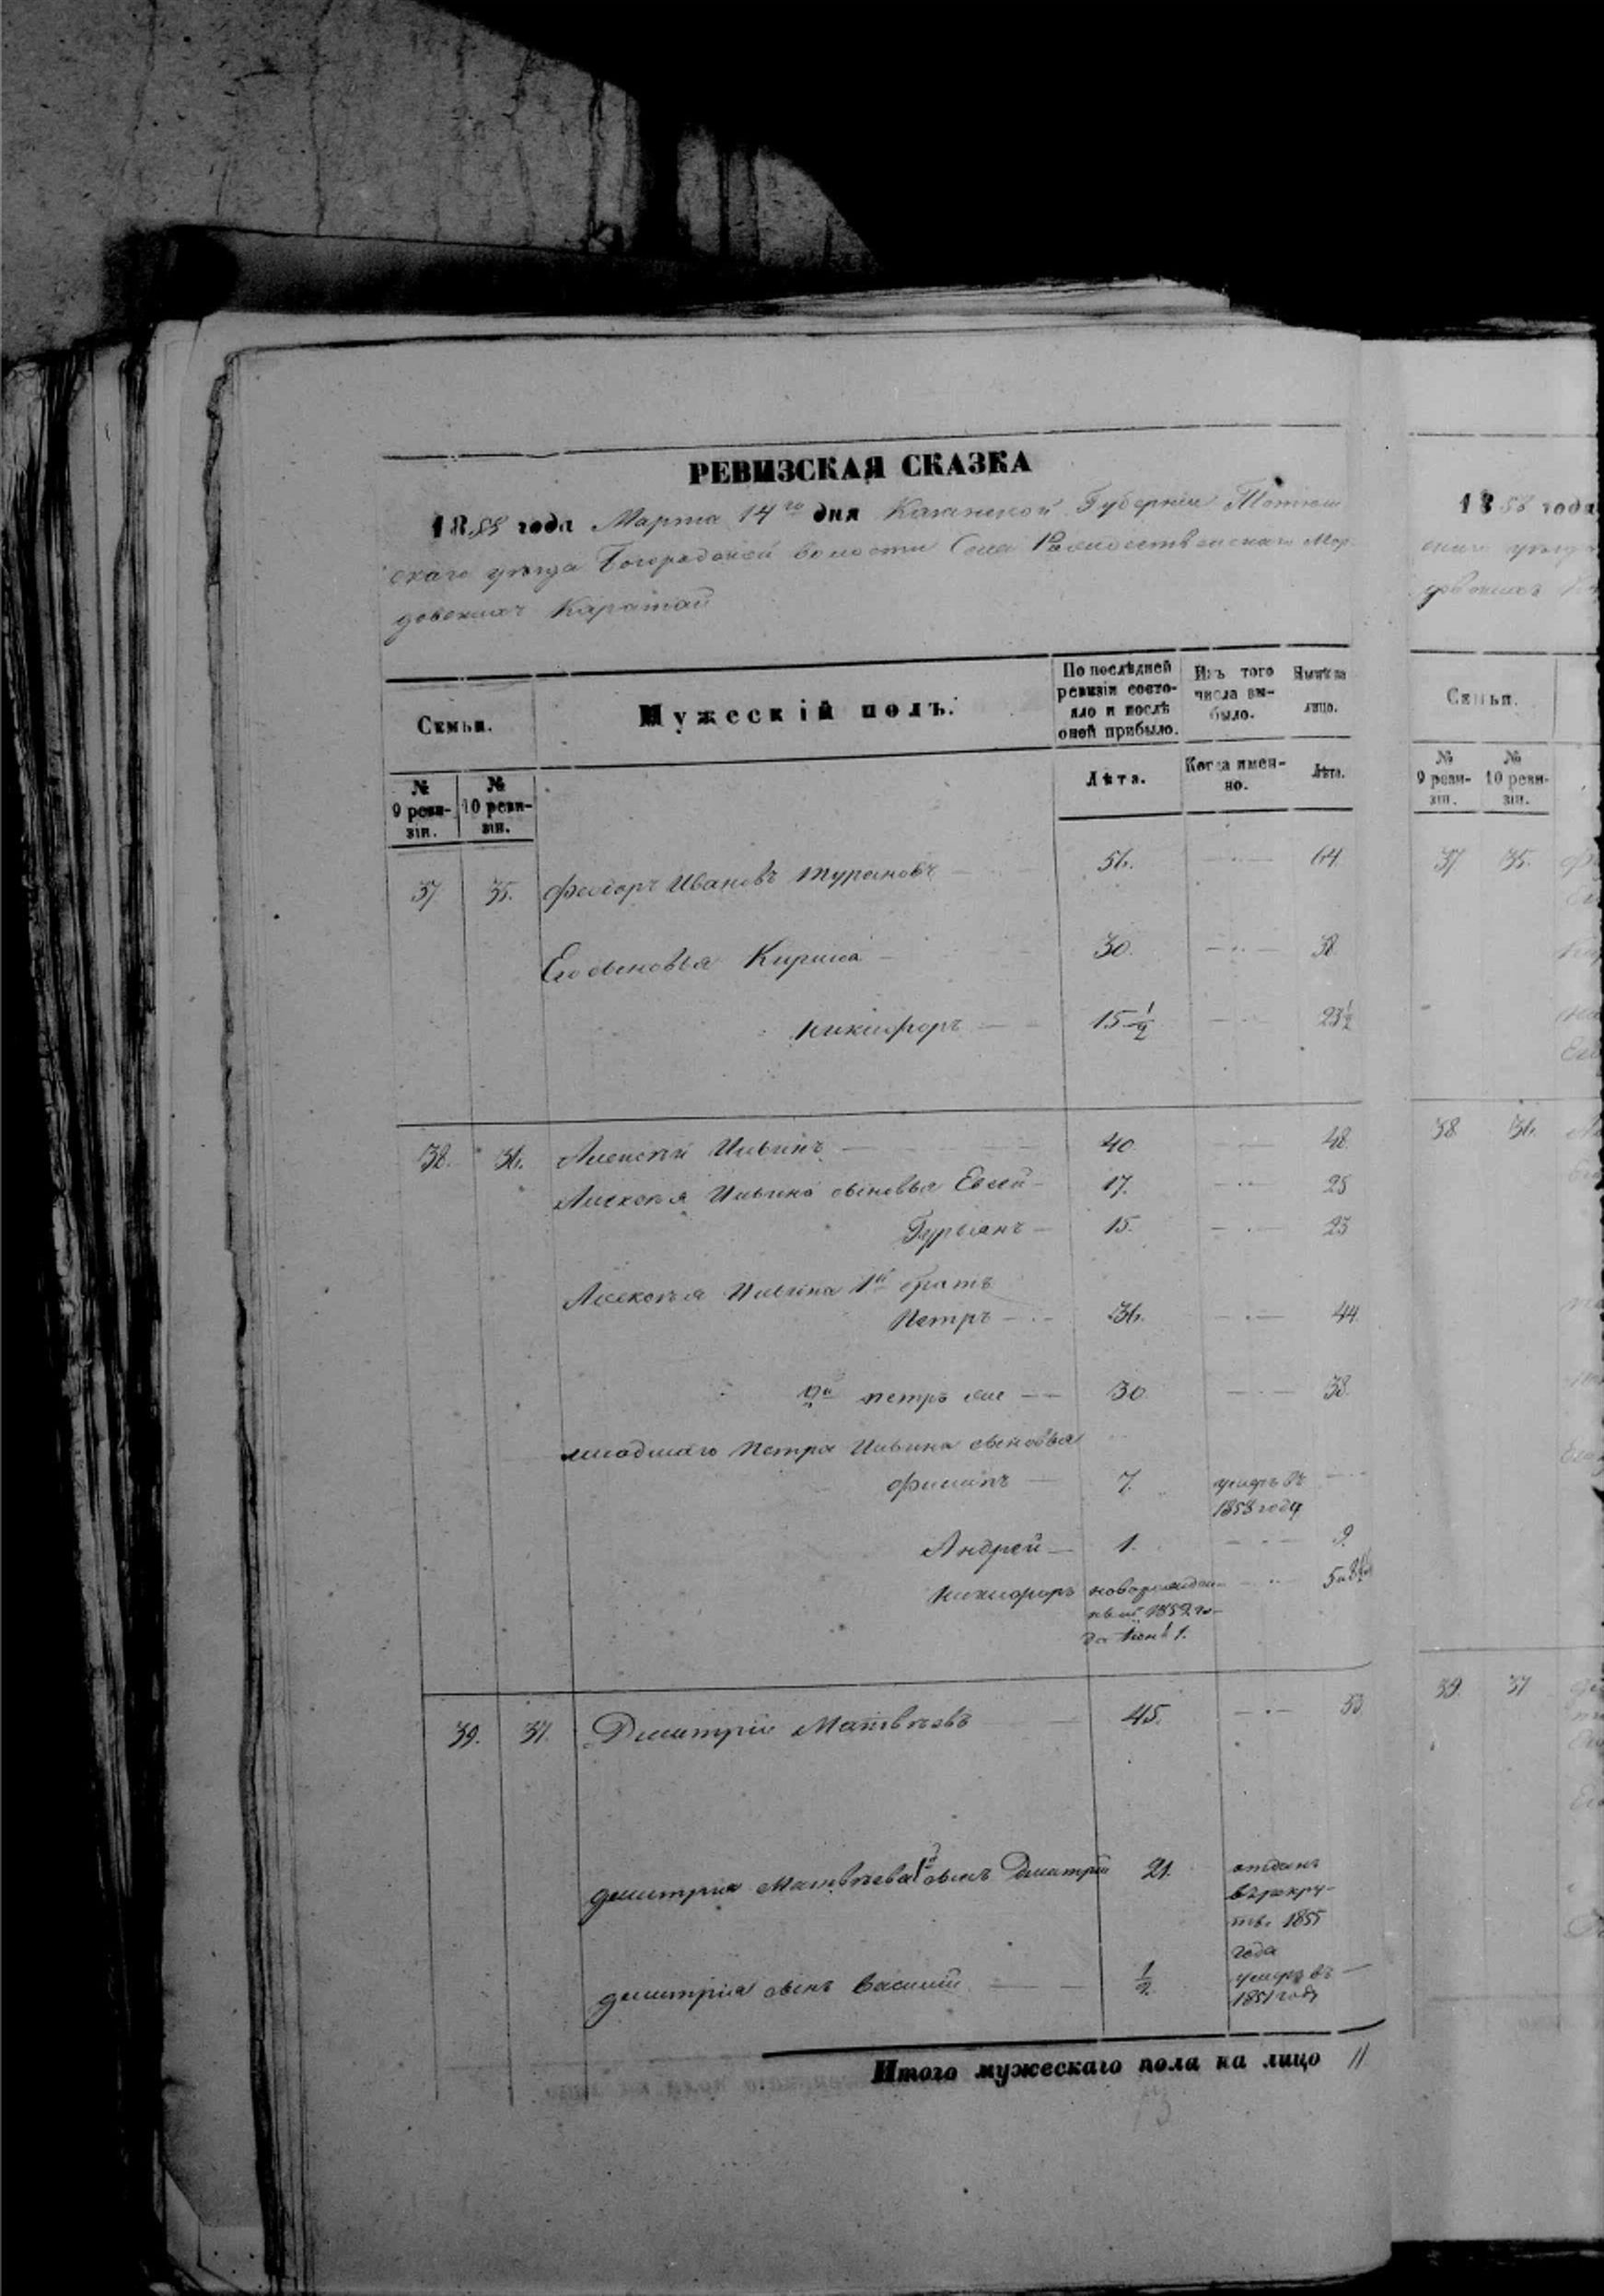 РЕВИЗСКАЯ СКАЗКА
1858 года Марта 14го дня Казанской Губернии Тетюш
скаго уезда Богородской волости Села Рождественскаго Мор-
довскихъ Каратай
Семьи.
Мужескій полъ.
По послѣдней ревизіи состо-яло и послѣ оной прибыло.
Изъ того числа вы-было.
Нынѣ на лицо.
№ 9 реви-зіи.
№ 10 реви-зіи.
Лѣта.
Когда имен-но.
Лѣта.
37 35. Федоръ Ивановъ Турановъ 56. 64
Его сыновья Кирила 30. 38
Никифоръ 15 1/2 23 1/2
38. 36. Алексѣй Ильинъ 40 48
Алексѣя Ильина сыновья Евсей 17. 25
Гурьянъ 15. 23
Алексѣя Ильина 1й братъ
Петръ 36. 44
2й Петръ же 30. 38
младшаго Петра Ильина сыновья
Филипъ 7. умеръ въ
1858 году
Андрей 1. 9.
Никифоръ новорожден-
ный 1852 го-
да Іюня 1.
39. 37. Дмитрій Матвѣевъ 45. 53
Дмитрия Матвѣева 1й сынъ Дмитрій 21. отданъ
въ рекру-
ты 1855
года
Дмитрія сынъ Василій 1/2 умеръ въ
1851 году
Итого мужескаго пола на лицо 11
1858 года
Семьи.
№ 9 реви-зіи.
№ 10 реви-зіи.
37 35.
38 36.
39. 37